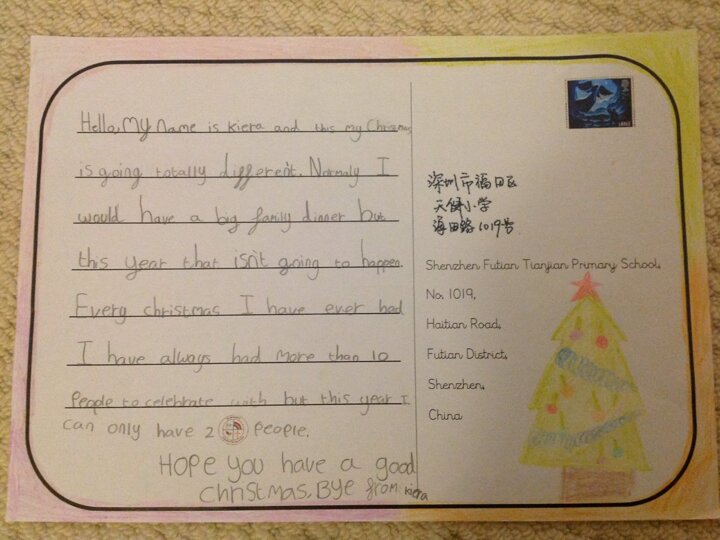 Hello, My Name is Kiera and this my Christmas
is going totally different. Normaly I
would have a big family dinner but
this year that isn't going to happen.
Every christmas I have ever had
I have always had more than 10
People to celebrate with but this year I
can only have 2 People.
HOPE YOU have a good
Christmas. Bye from kiera
深圳市福田区
天健小学
海田路1019号
Shenzhen Futian Tianjian Primary School,
No. 1019,
Haitian Road,
Futian District,
Shenzhen,
China